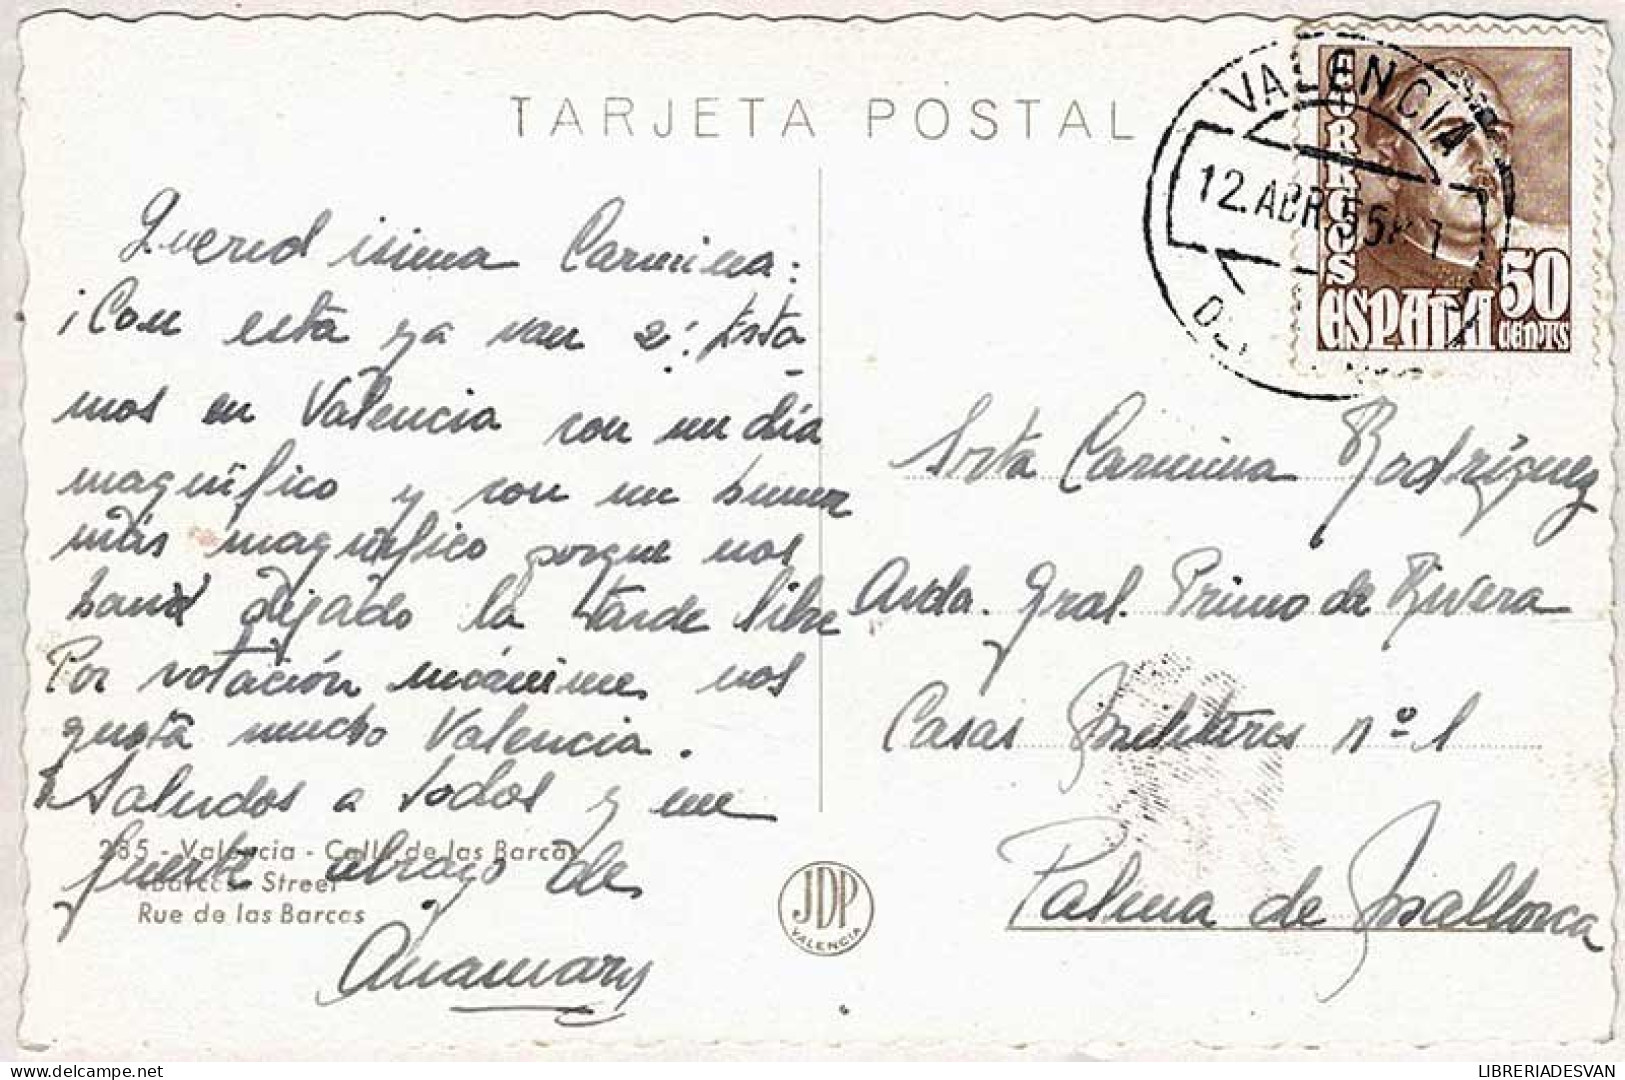 TARJETA POSTAL
VALENCIA
12.ABR.55
CORREOS
ESPAÑA
50
CENTS
Queridisima Carmina:
¡Con esta ya van 2! Esta-
mos en Valencia con un día
magnífico y con un humor
más magnífico porque nos
han dejado la tarde libre
Por votación unánime nos
gusta mucho Valencia.
Saludos a todos y un
fuerte abrazo de
Anamary
Srta Carmina Rodríguez
Avda. Gral. Primo de Rivera
Casas Militares nº 1
Palma de Mallorca
285 - Valencia - Calle de las Barcas
Barcas Street
Rue de las Barcas
JDP
VALENCIA
LIBRERIADESVAN